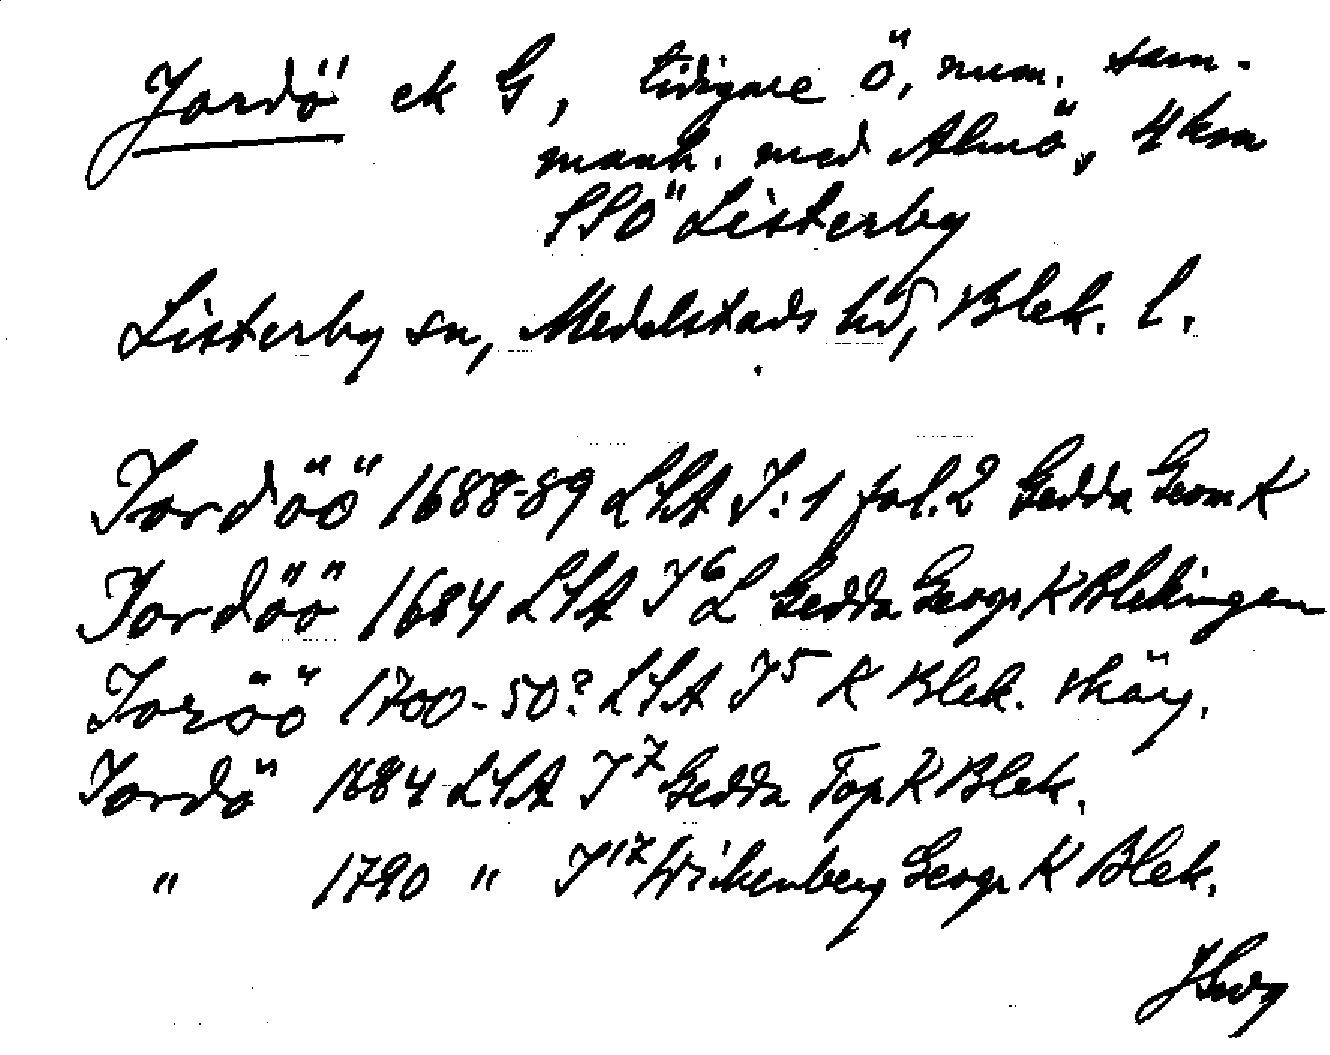 Jordö ek G, tidigare ö, num. sam-
manh. med Almö, 4 km
SSÖ Listerby
Listerby sn, Medelstads hd, Blek. l.
Jordöö 1688-89 LSA I:1 fol. 2 Gedda Geom K
Jordöö 1684 LSA I 6 L Gedda Geogr K Blekingen
Joröö 1700-50? LSA I 5 K Blek. skärg.
Jordö 1684 LSA I 7 Gedda Top K Blek.
" 1790 " I 17 Wikenberg Geogr K Blek.